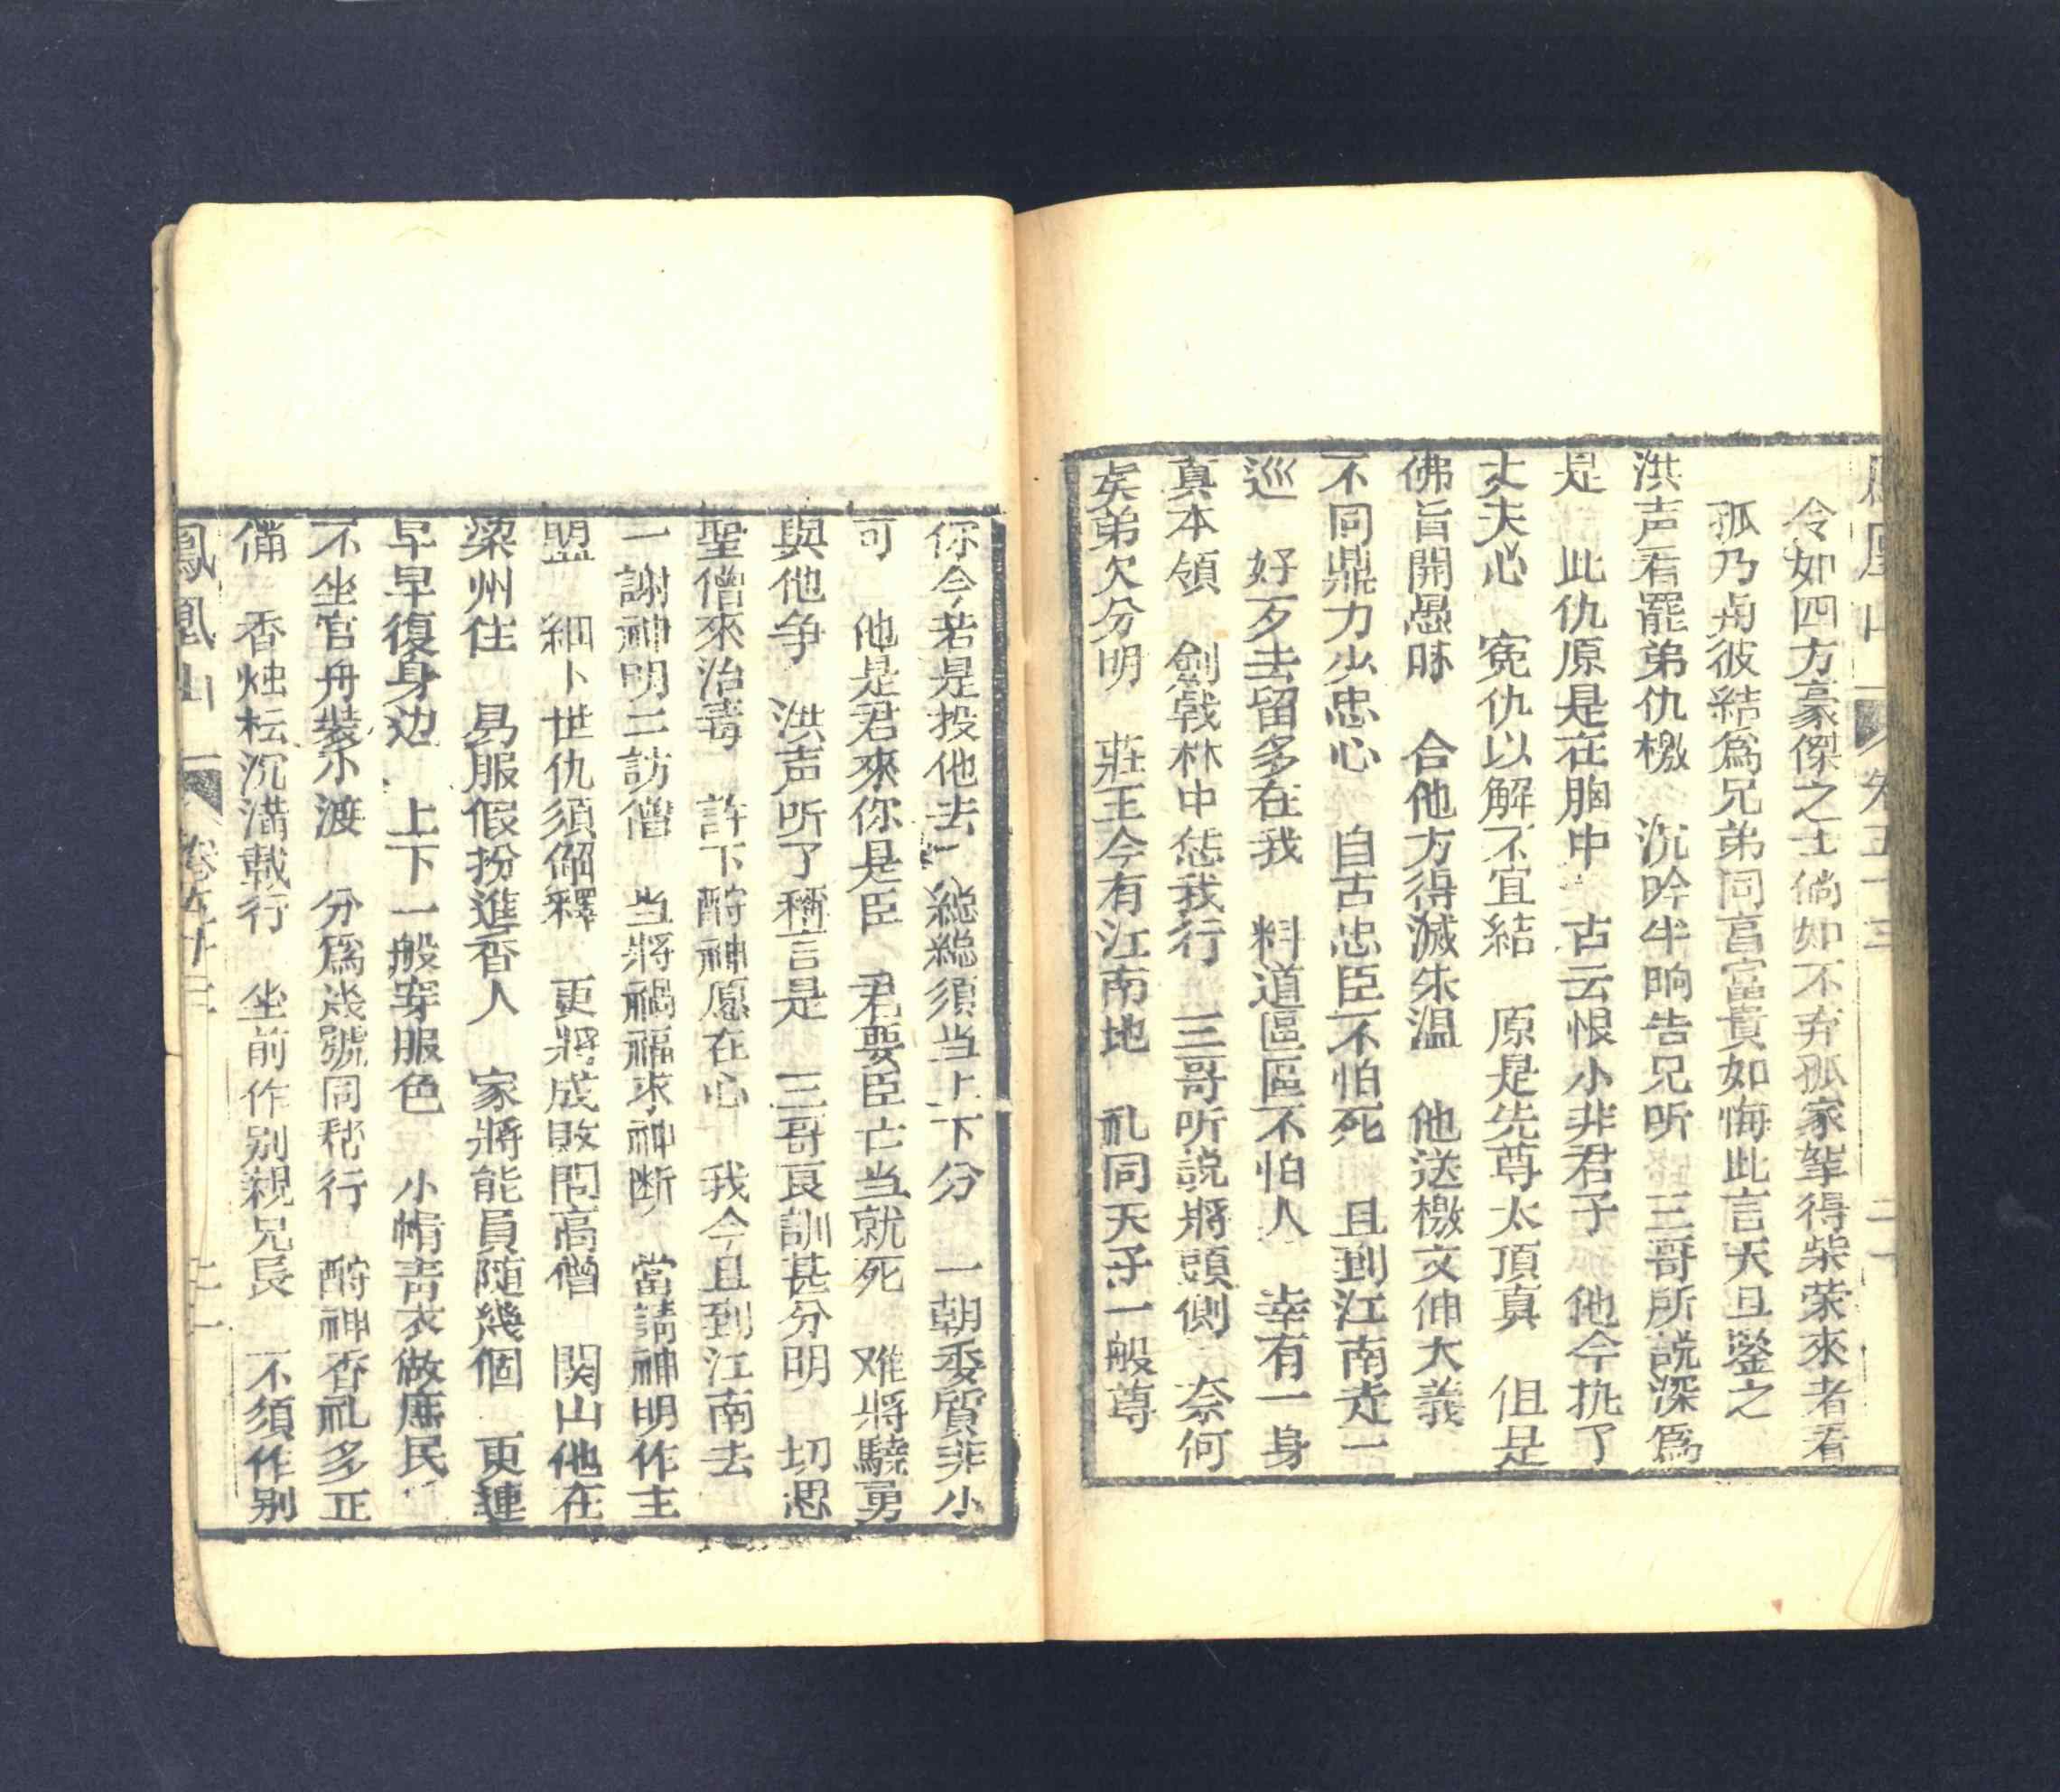 鳳凰山 卷五十三 二十
令如四方豪傑之士倘如不弃孤家輩得柴荣來者看
孤乃与彼結爲兄弟同享富貴如悔此言天且鑒之
洪声看罷弟仇檄 沉吟半晌告兄听 三哥所説深爲
是 此仇原是在胸中 古云恨小非君子 他今抗了
丈夫心 寃仇以解不宜結 原是先尊太頂真 但是
佛旨開愚昧 合他方得滅朱温 他送檄文伸大義
不同鼎力少忠心 自古忠臣不怕死 且到江南走一
巡 好歹去留多在我 料道區區不怕人 幸有一身
真本領 劍戟林中恁我行 三哥听説將頭側 奈何
矣弟欠分明 莊王今有江南地 礼同天子一般尊
你今若是投他去 總總須当上下分 一朝委質非小
可 他是君來你是臣 君要臣亡当就死 难將驍勇
與他争 洪声听了稱言是 三哥良訓甚分明 切思
聖僧來治毒 許下酧神愿在心 我今且到江南去
一謝神明二訪僧 当將禍福求神断 當請神明作主
盟 細卜世仇須解釋 更將成敗問高僧 関山他在
梁州住 易服假扮進香人 家將能員随幾個 更連
早早復身边 上下一般穿服色 小帽青衣做庶民
不坐官舟裝小渡 分爲幾號同稱行 酧神香礼多正
備 香烛枟沉满載行 坐前作别親兄長 不須作别
鳳凰山 卷五十三 二十一